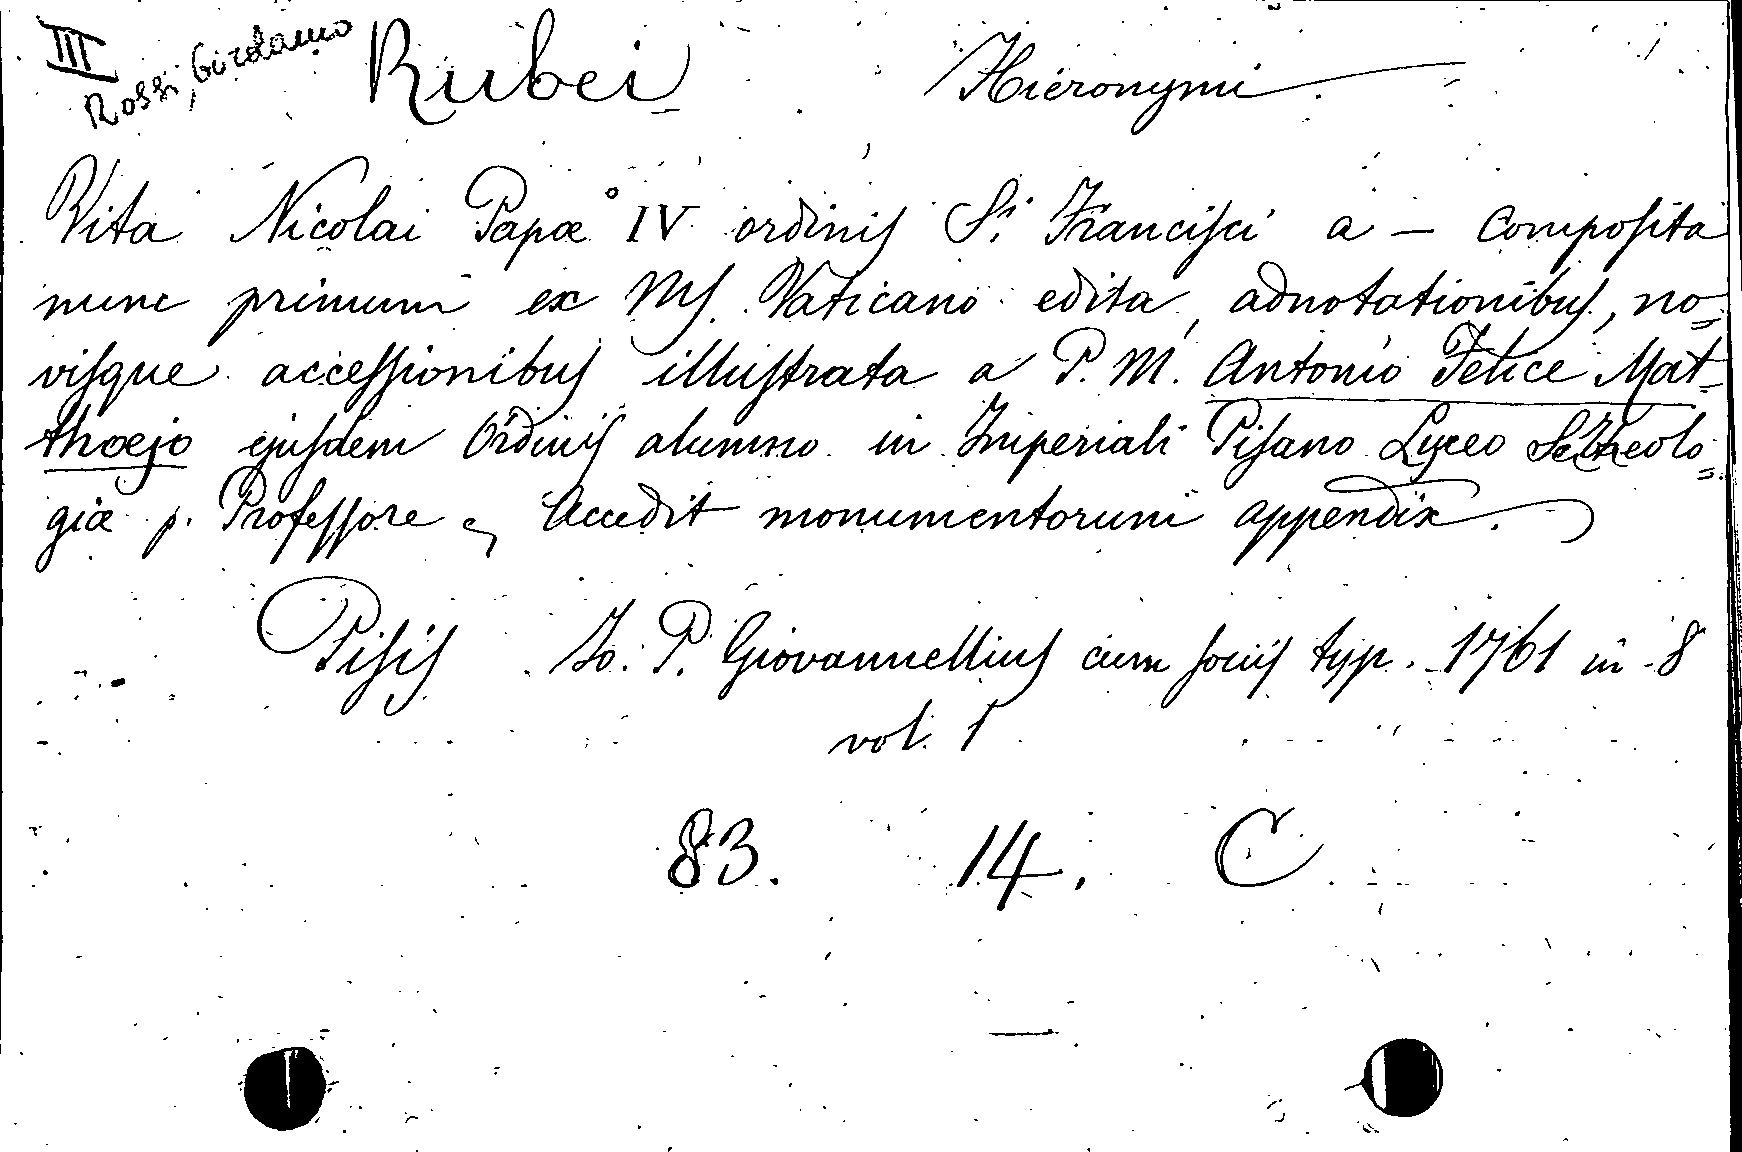 III
Rossi, Girolamo
Rubei Hieronymi
Vita Nicolai Papæ IV ordinis S.i Francisci a — composita
nunc primum ex Ms. Vaticano edita, adnotationibus, no=
visque accessionibus illustrata a P. M. Antonio Felice Mat=
thæjo ejusdem Ordinis alumno in Imperiali Pisano Lyceo S. Theolo=
giæ p. Professore Accedit monumentorum appendix.
Pisis Jo. P. Giovannellius cum sociis typ. 1761 in 8
vol. 1
83. 14. C